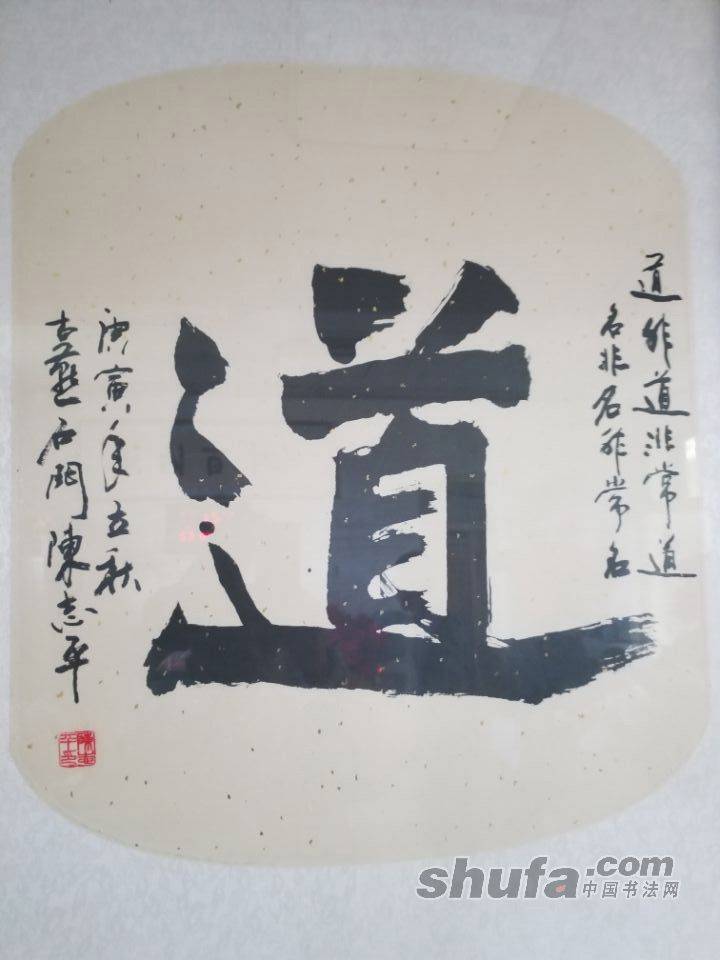 道非道非常道
名非名非常名
道
庚寅年立秋
古燕石門陳志平
陳志平印
shufa.com
中国书法网